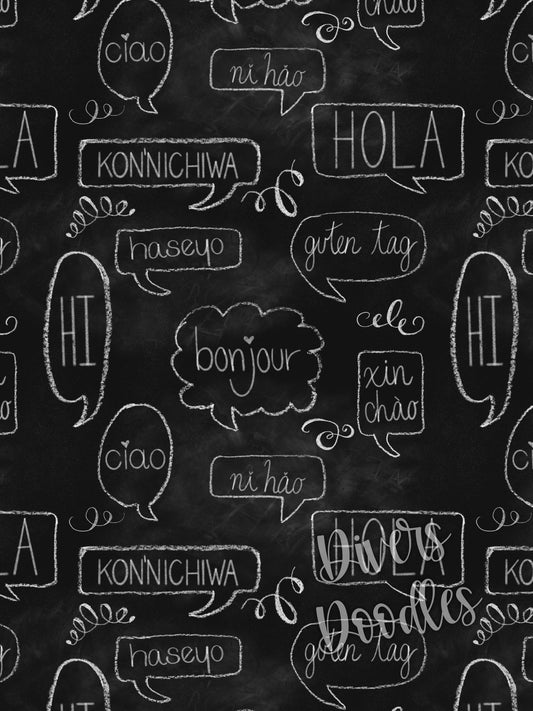 chào
ciao
nǐ hǎo
LA
KON'NICHIWA
HOLA
KO
haseyo
guten tag
HI
HI
bonjour
xin
chào
ciao
nǐ hǎo
HOLA
Divers
KON'NICHIWA
KO
Doodles
haseyo
guten tag
HI
HI